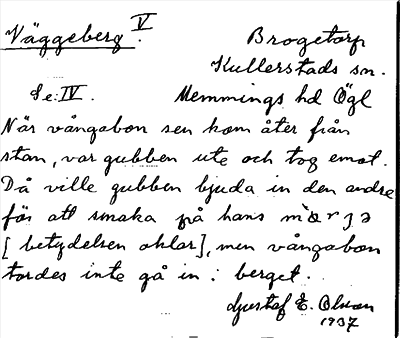 Väggeberg. V
Brogetorp
Kullerstads sn.
Se: IV. Memmings hd Ögl
När vångabon sen kom åter från
stan, var gubben ute och tog emot.
Då ville gubben bjuda in den andre
för att smaka på hans
[betydelsen oklar], men vångabon
tordes inte gå in i berget.
Gustaf E. Olsson
1937